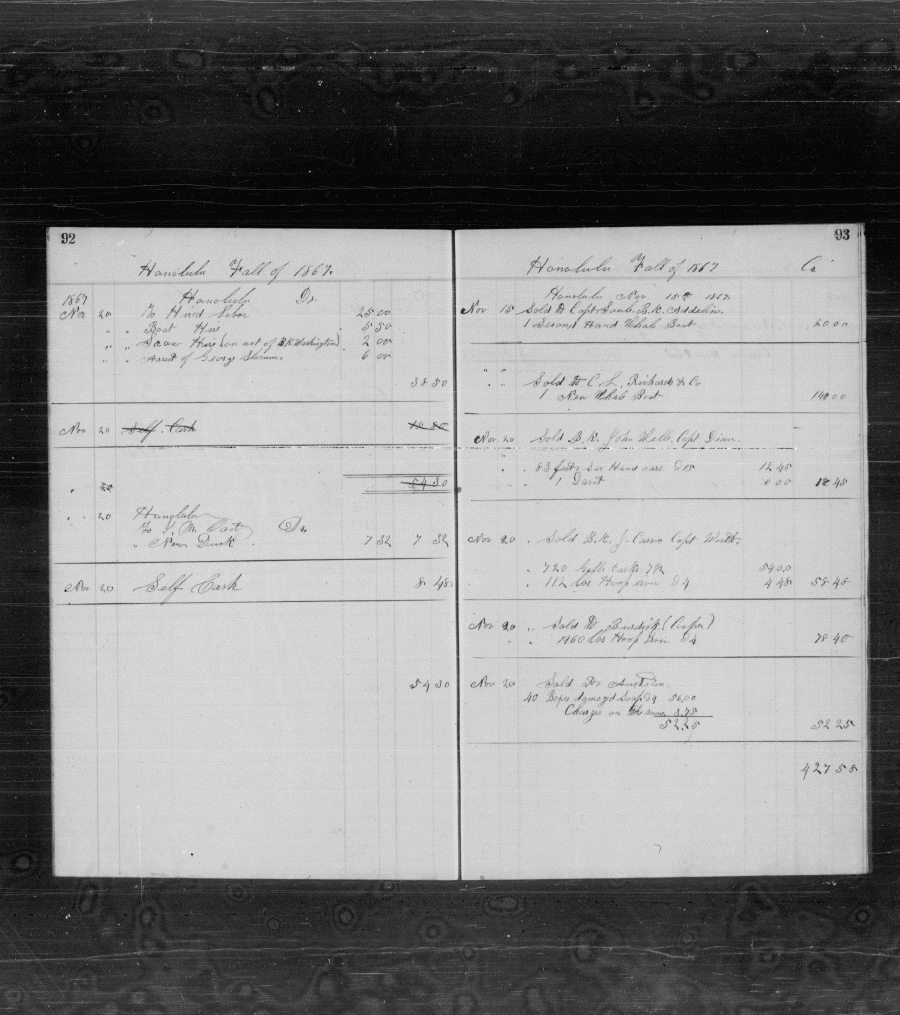 92
Honolulu Fall of 1867.
1867 Honolulu Dr.
Nov 20 To Hired Labor 25 00
" " Boat Hire 5 50
" " Scow Hire (on act of B.K. Washington) 2 00
" " Arrest of George 6 00
38 50
Nov 20 Self Cash
" 20 54 30
" " 20 Honolulu
To J. M. Dr
" New 7 32 7 32
Nov 20 Self Cash 8 48
54 30
93
Honolulu Fall of 1867 Cr
Honolulu Nov 15th 1867
Nov 15 Sold to Capt Soule B.K. Addeline.
1 Second Hand Whale Boat 60 00
" " Sold to C. L. Richards & Co
1 New Whale Boat
Nov 20 Sold B.K. John Wells. Capt Dean.
" " 83 feet Sec Hand oars @15 12 45
" " 1 Davit 6 00 18 45
Nov 20 " Sold B.K. J. Capt Worth.
" 720 Galls casks 7½ 54 00
" " 112 lbs Hoop iron @ 4 4 48 58 48
Nov 20 " Sold to Burdick (Cooper)
" " 1960 lbs Hoop Iron @ 4 78 40
Nov 20 Sold At Auction.
40 Boxes damagd Soap 56.00
Charges on the same 3.75
52.25 52 25
427 58